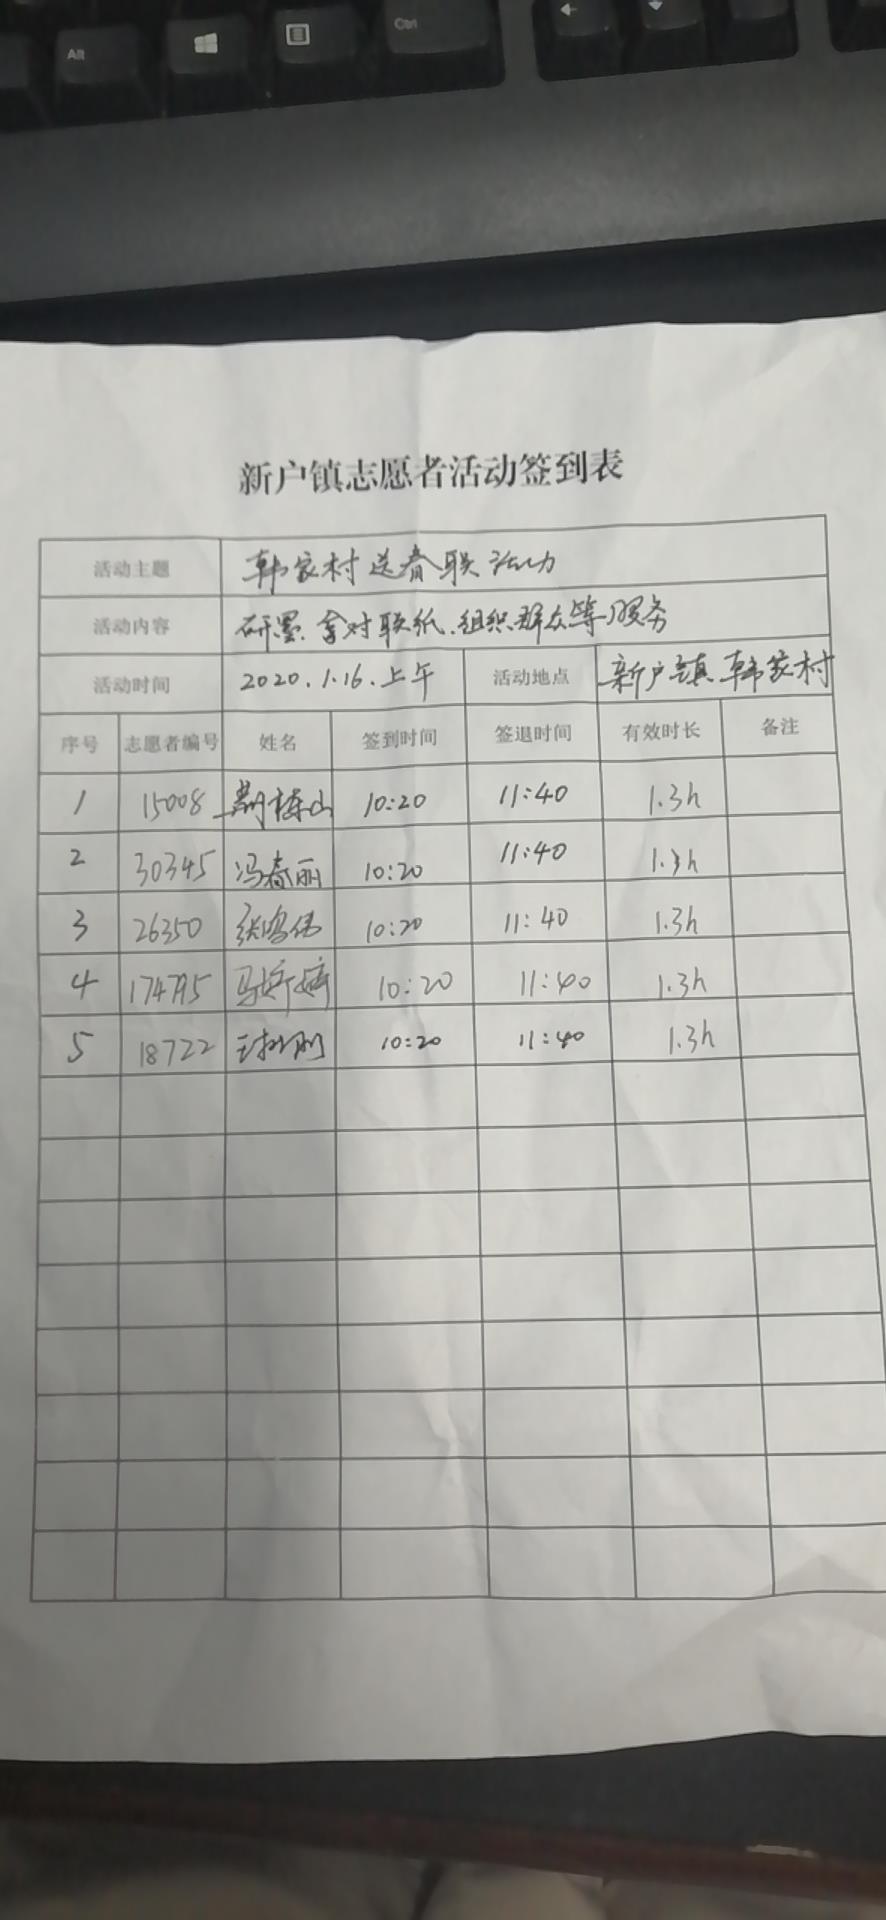 Alt
Ctrl
新户镇志愿者活动签到表
活动主题 韩家村送春联活动
活动内容 研墨、拿对联纸、组织群众等服务
活动时间 2020.1.16.上午 活动地点 新户镇韩家村
序号 志愿者编号 姓名 签到时间 签退时间 有效时长 备注
1 15008 10:20 11:40 1.3h
2 30345 冯春丽 10:20 11:40 1.3h
3 26350 张鸿伟 10:20 11:40 1.3h
4 174795 马婷婷 10:20 11:40 1.3h
5 18722 10:20 11:40 1.3h